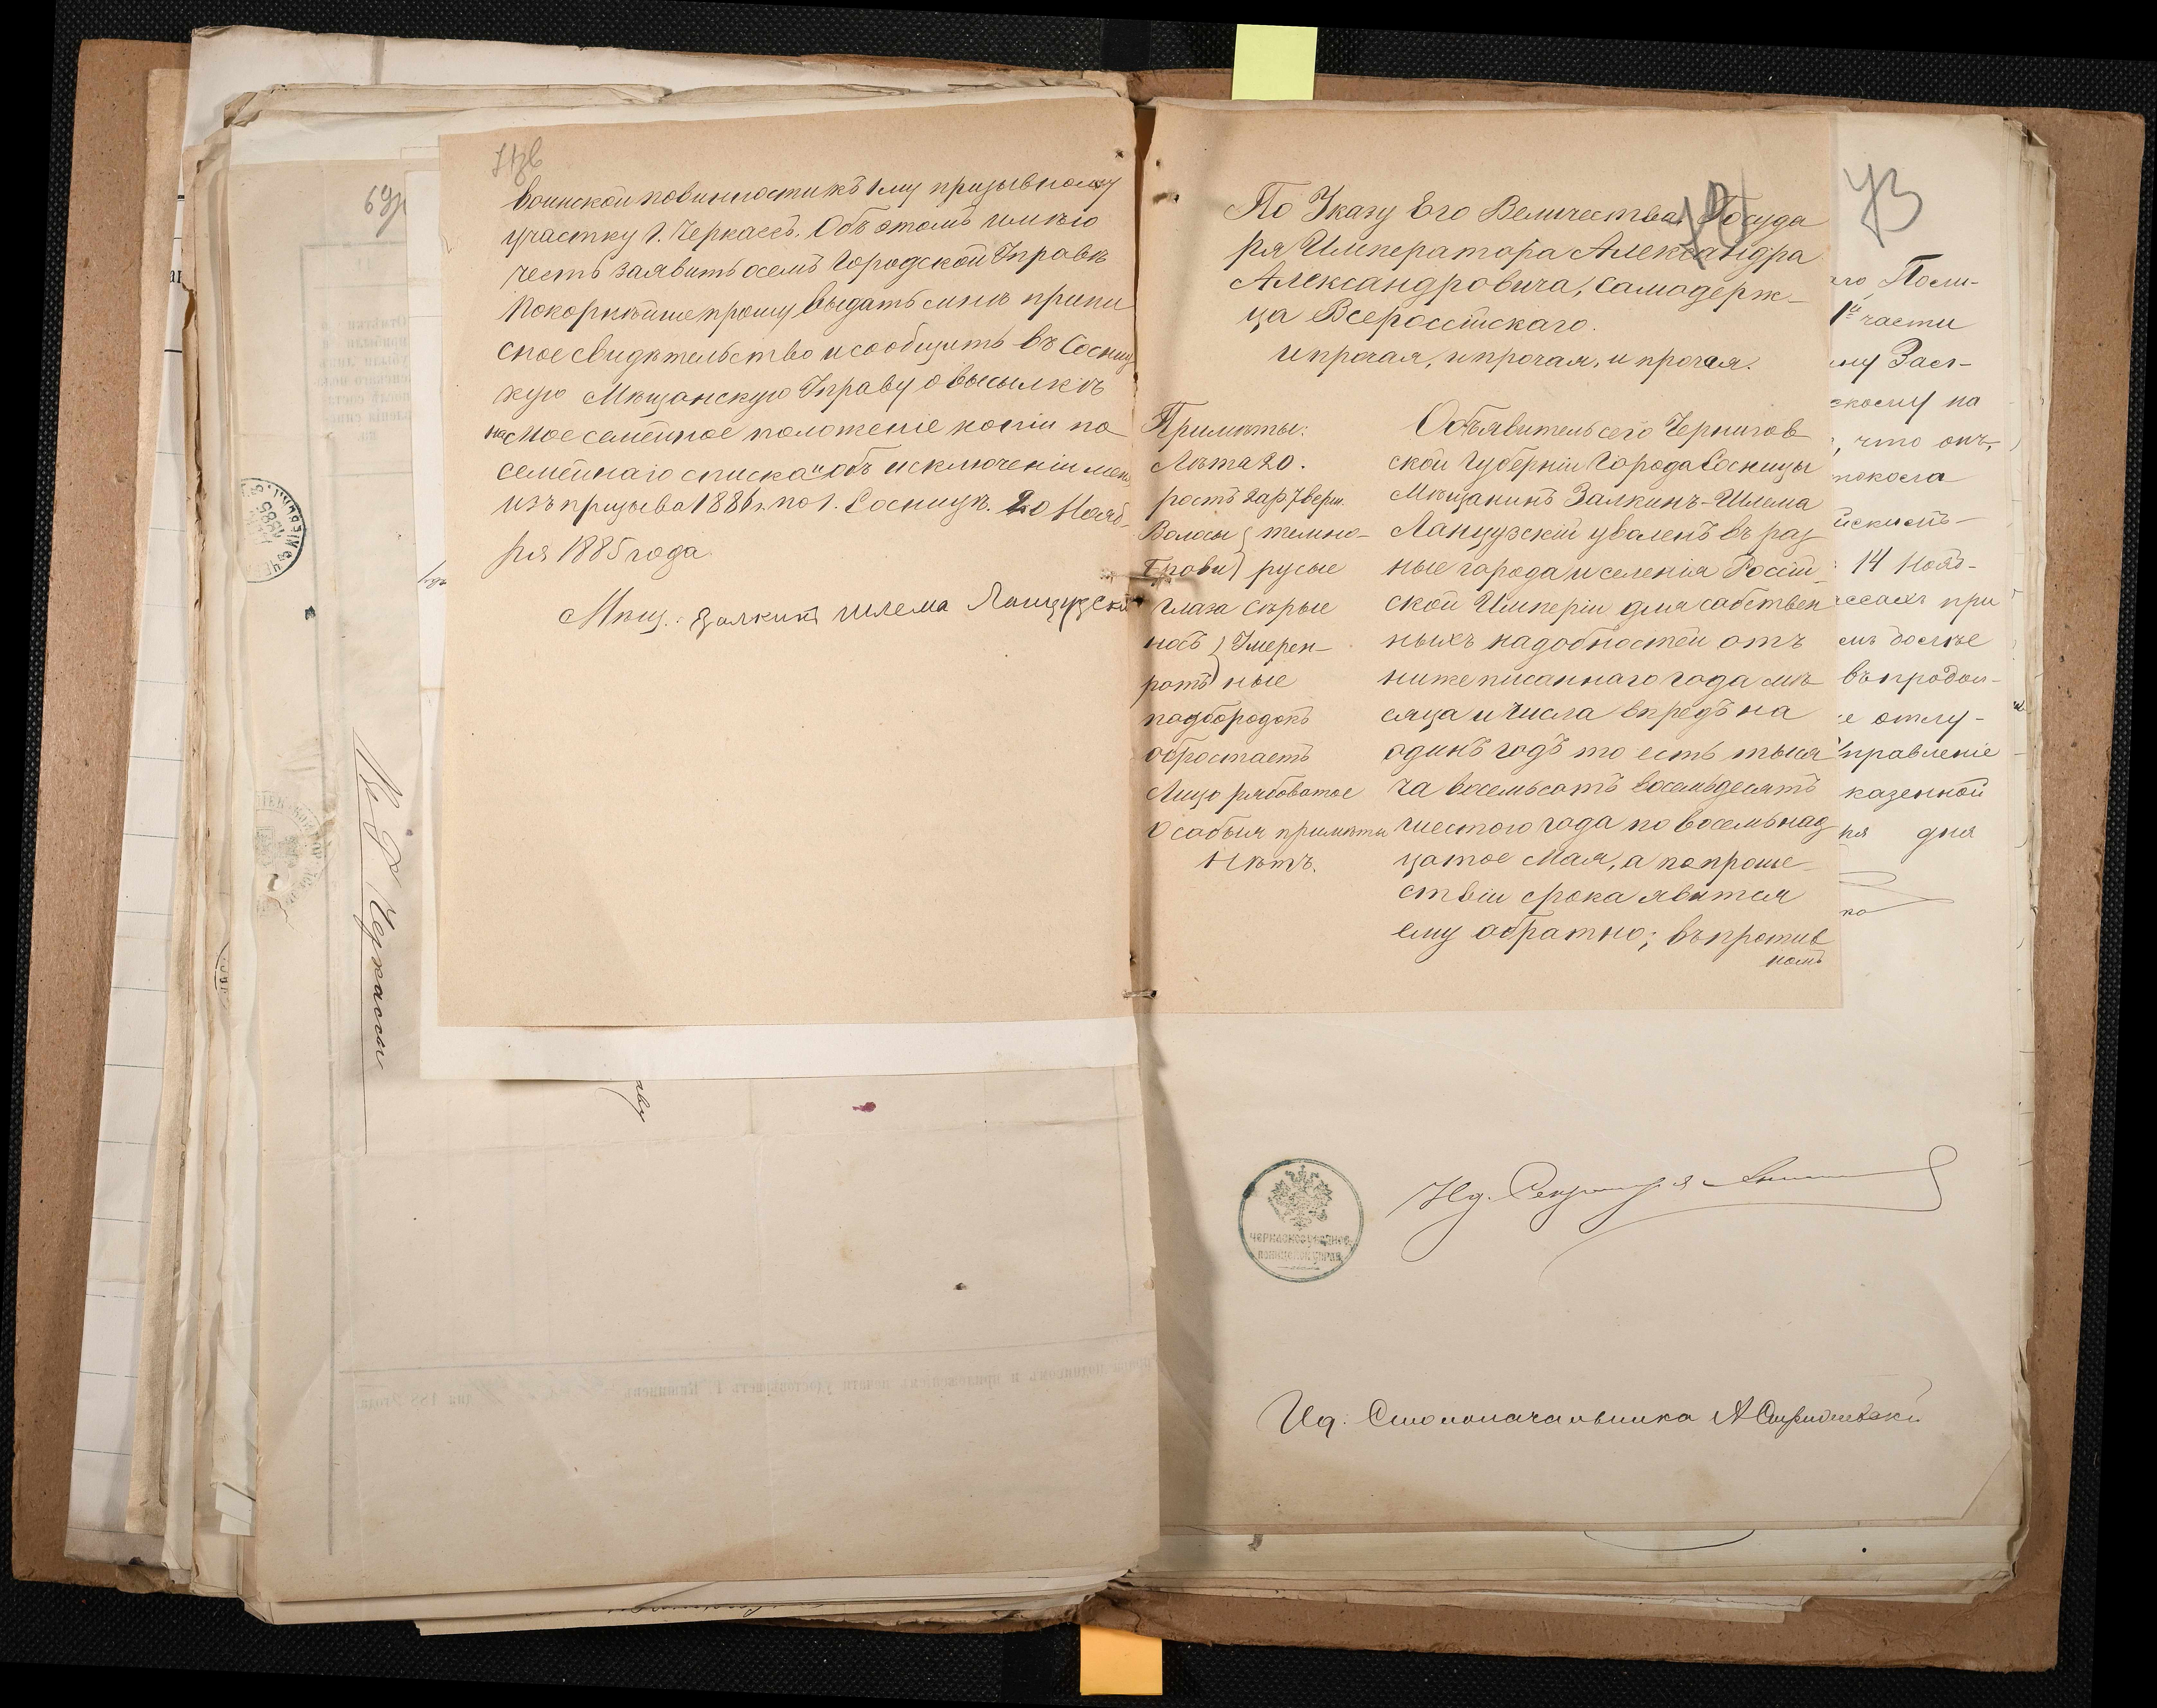 воинской повинности къ 1му призывному
участку г. Черкассъ. Объ этомъ имѣю
честь заявить осемъ Городской Управѣ
покорнѣйше прошу выдать мнѣ припи
сное свидѣтельство и сообщить въ Сосниц
кую Мѣщанскую Управу о высылкѣ
на мое семейное положеніе копіи по
семейнаго списка и объ исключеніи меня
изъ призыва 1886 г. по г. Сосницѣ. 20 Нояб-
ря 1885 года
Мѣщ.: Залкинъ Шлема Ланцузскій
69
1885
Г. Черкассы
73
По Указу Его Величества Государ
ря Императора Александра
Александровича, Самодерж-
ца Всероссійскаго.
и прочая, и прочая, и прочая.
Примѣты:
Лѣта 20.
ростъ 2 ар. 7 верш.
Волосы } темно-
Брови } русые
глаза сѣрые
носъ } Умерен-
ротъ } ные
подбородокъ
обростаетъ
Лицо рябоватое
Особыя примѣты
Нѣтъ.
Объявитель сего Чернигов-
ской Губерніи Города Сосницы
Мѣщанинъ Залкинъ-Шлема
Ланцузскій уваленъ въ раз
ные города и селенія Россій-
ской Имперіи для собствен
ныхъ надобностей отъ
нижеписаннаго года мѣ-
сяца и числа впредъ на
одинъ годъ то есть тыся
ча восемьсотъ восемьдесятъ
шестого года по восемьнад
цатое Мая, а по проше-
ствіи срока явится
ему обратно; въ против
номъ
го Поли-
1й части
му Зас-
скому на
, что онъ,
14 Нояб-
ссахъ при
мъ болѣе
въ продол-
е отлу-
Управленіе
казенной
ня дня
ко
ЧЕРКАССКОЕ УѢЗДНОЕ
ПОЛИЦЕЙСК. УПРАВ.
Ид. Секретаря
Ид. Столоначальника